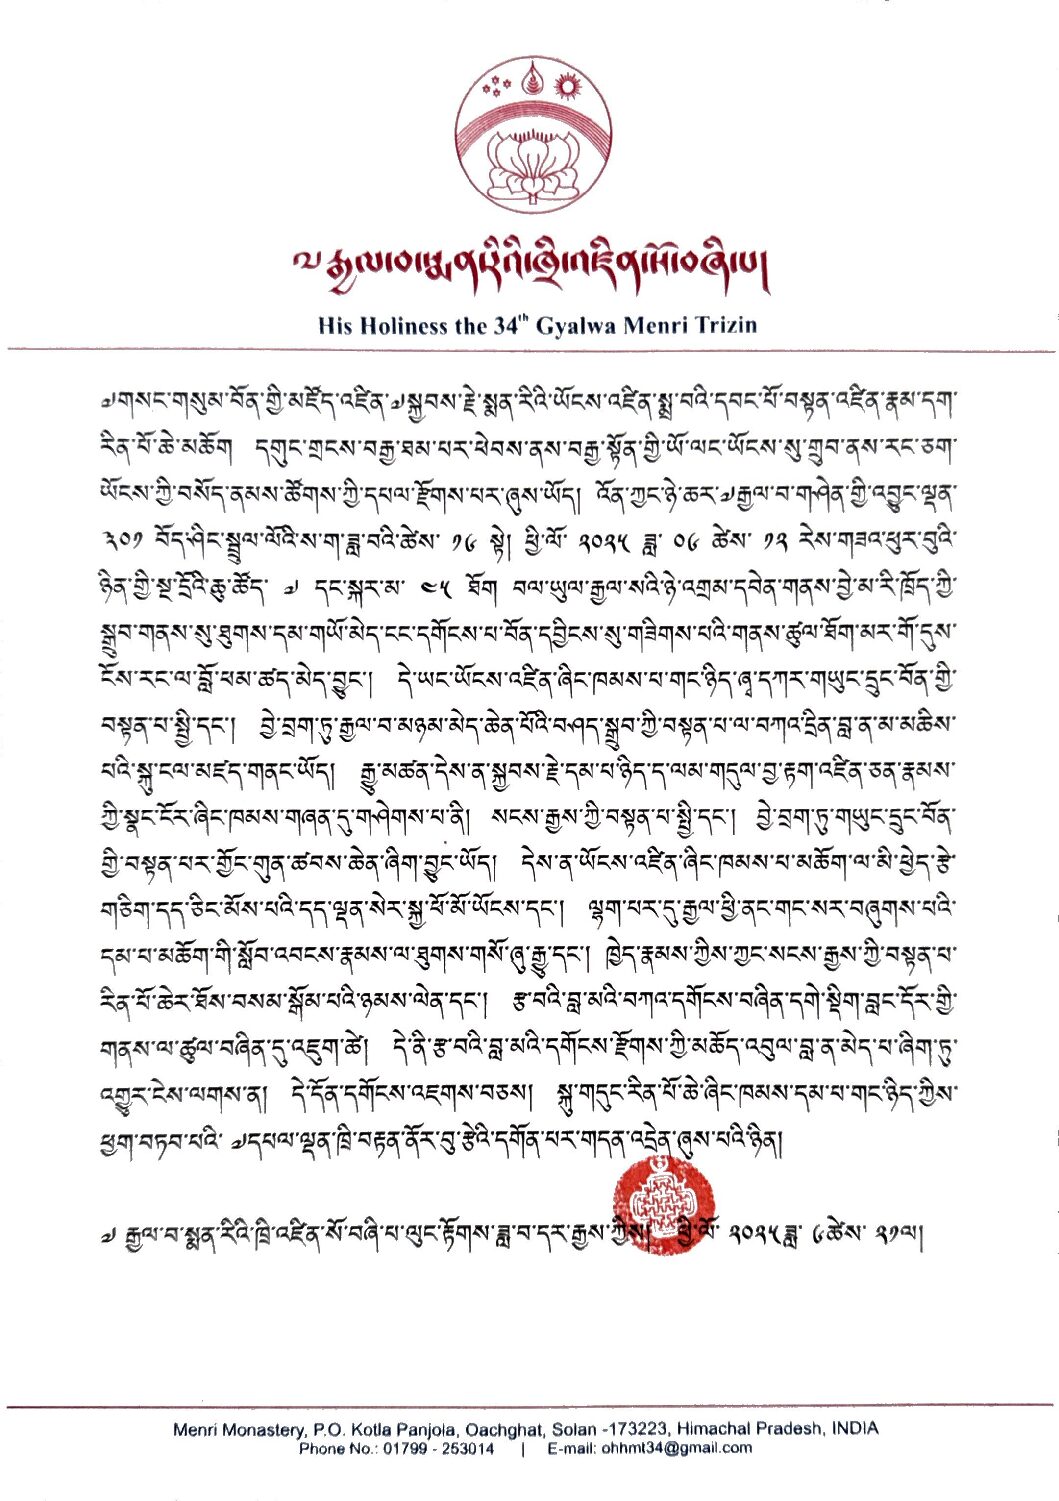 ༧རྒྱལ་བ་སྨན་རིའི་ཁྲི་འཛིན་སོ་བཞི་པ།
His Holiness the 34th Gyalwa Menri Trizin
༧གསང་གསུམ་བོན་གྱི་མཛོད་འཛིན་༧སྐྱབས་རྗེ་སྨན་རིའི་ཡོངས་འཛིན་སྨྲ་བའི་དབང་པོ་བསྟན་འཛིན་རྣམ་དག་
རིན་པོ་ཆེ་མཆོག དགུང་གྲངས་བརྒྱ་ཐམ་པར་ཕེབས་ནས་བརྒྱ་སྟོན་གྱི་ཡོ་ལང་ཡོངས་སུ་གྲུབ་ནས་རང་ཅག་
ཡོངས་ཀྱི་བསོད་ནམས་ཚོགས་ཀྱི་དཔལ་རྫོགས་པར་ཞུས་ཡོད། འོན་ཀྱང་ཉེ་ཆར་༧རྒྱལ་བ་གཤེན་གྱི་འབྱུང་ལྡན་
༣༠༡ བོད་ཤིང་སྦྲུལ་ལོའི་ས་ག་ཟླ་བའི་ཚེས་ ༡༦ སྟེ། ཕྱི་ལོ་ ༢༠༢༥ ཟླ་ ༠༦ ཚེས་ ༡༢ རེས་གཟའ་ཕུར་བུའི་
ཉིན་གྱི་སྔ་དྲོའི་ཆུ་ཚོད་ ༧ དང་སྐར་མ་ ༤༥ ཐོག བལ་ཡུལ་རྒྱལ་སའི་ཉེ་འགྲམ་དབེན་གནས་བྱེ་མ་རི་ཁྲོད་ཀྱི་
སྒྲུབ་གནས་སུ་ཐུགས་དམ་གཡོ་མེད་ངང་དགོངས་པ་བོན་དབྱིངས་སུ་གཟིགས་པའི་གནས་ཚུལ་ཐོག་མར་གོ་དུས་
ངོས་རང་ལ་བློ་ཕམ་ཚད་མེད་བྱུང་། དེ་ཡང་ཡོངས་འཛིན་ཞིང་ཁམས་པ་གང་ཉིད་ཞྭ་དཀར་གཡུང་དྲུང་བོན་གྱི་
བསྟན་པ་སྤྱི་དང་། བྱེ་བྲག་ཏུ་རྒྱལ་བ་མཉམ་མེད་ཆེན་པོའི་བཤད་སྒྲུབ་ཀྱི་བསྟན་པ་ལ་བཀའ་དྲིན་བླ་ན་མ་མཆིས་
པའི་སྐུ་ངལ་མཛད་གནང་ཡོད། རྒྱུ་མཚན་དེས་ན་སྐྱབས་རྗེ་དམ་པ་ཉིད་ད་ལམ་གདུལ་བྱ་རྟག་འཛིན་ཅན་རྣམས་
ཀྱི་སྣང་ངོར་ཞིང་ཁམས་གཞན་དུ་གཤེགས་པ་ནི། སངས་རྒྱས་ཀྱི་བསྟན་པ་སྤྱི་དང་། བྱེ་བྲག་ཏུ་གཡུང་དྲུང་བོན་
གྱི་བསྟན་པར་གྱོང་གུན་ཚབས་ཆེན་ཞིག་བྱུང་ཡོད། དེས་ན་ཡོངས་འཛིན་ཞིང་ཁམས་པ་མཆོག་ལ་མི་ཕྱེད་རྩེ་
གཅིག་དད་ཅིང་མོས་པའི་དད་ལྡན་སེར་སྐྱ་ཕོ་མོ་ཡོངས་དང་། ལྷག་པར་དུ་རྒྱལ་ཕྱི་ནང་གང་སར་བཞུགས་པའི་
དམ་པ་མཆོག་གི་སློབ་འབངས་རྣམས་ལ་ཐུགས་གསོ་ཞུ་རྒྱུ་དང་། ཁྱེད་རྣམས་ཀྱིས་ཀྱང་སངས་རྒྱས་ཀྱི་བསྟན་པ་
རིན་པོ་ཆེར་ཐོས་བསམ་སྒོམ་པའི་ཉམས་ལེན་དང་། རྩ་བའི་བླ་མའི་བཀའ་དགོངས་བཞིན་དགེ་སྡིག་བླང་དོར་གྱི་
གནས་ལ་ཚུལ་བཞིན་དུ་འཇུག་ཚེ། དེ་ནི་རྩ་བའི་བླ་མའི་དགོངས་རྫོགས་ཀྱི་མཆོད་འབུལ་བླ་ན་མེད་པ་ཞིག་ཏུ་
འགྱུར་ངེས་ལགས་ན། དེ་དོན་དགོངས་འཇགས་བཅས། སྐུ་གདུང་རིན་པོ་ཆེ་ཞིང་ཁམས་དམ་པ་གང་ཉིད་ཀྱིས་
ཕྱག་བཏབ་པའི་ ༧དཔལ་ལྡན་ཁྲི་བརྟན་ནོར་བུ་རྩེའི་དགོན་པར་གདན་འདྲེན་ཞུས་པའི་ཉིན།
༧ རྒྱལ་བ་སྨན་རིའི་ཁྲི་འཛིན་སོ་བཞི་པ་ལུང་རྟོགས་ཟླ་བ་དར་རྒྱས་ཀྱིས། ཕྱི་ལོ་ ༢༠༢༥ ཟླ་ ༦ ཚེས་ ༢༡ལ།
Menri Monastery, P.O. Kotla Panjola, Oachghat, Solan -173223, Himachal Pradesh, INDIA
Phone No.: 01799 - 253014 | E-mail: ohhmt34@gmail.com